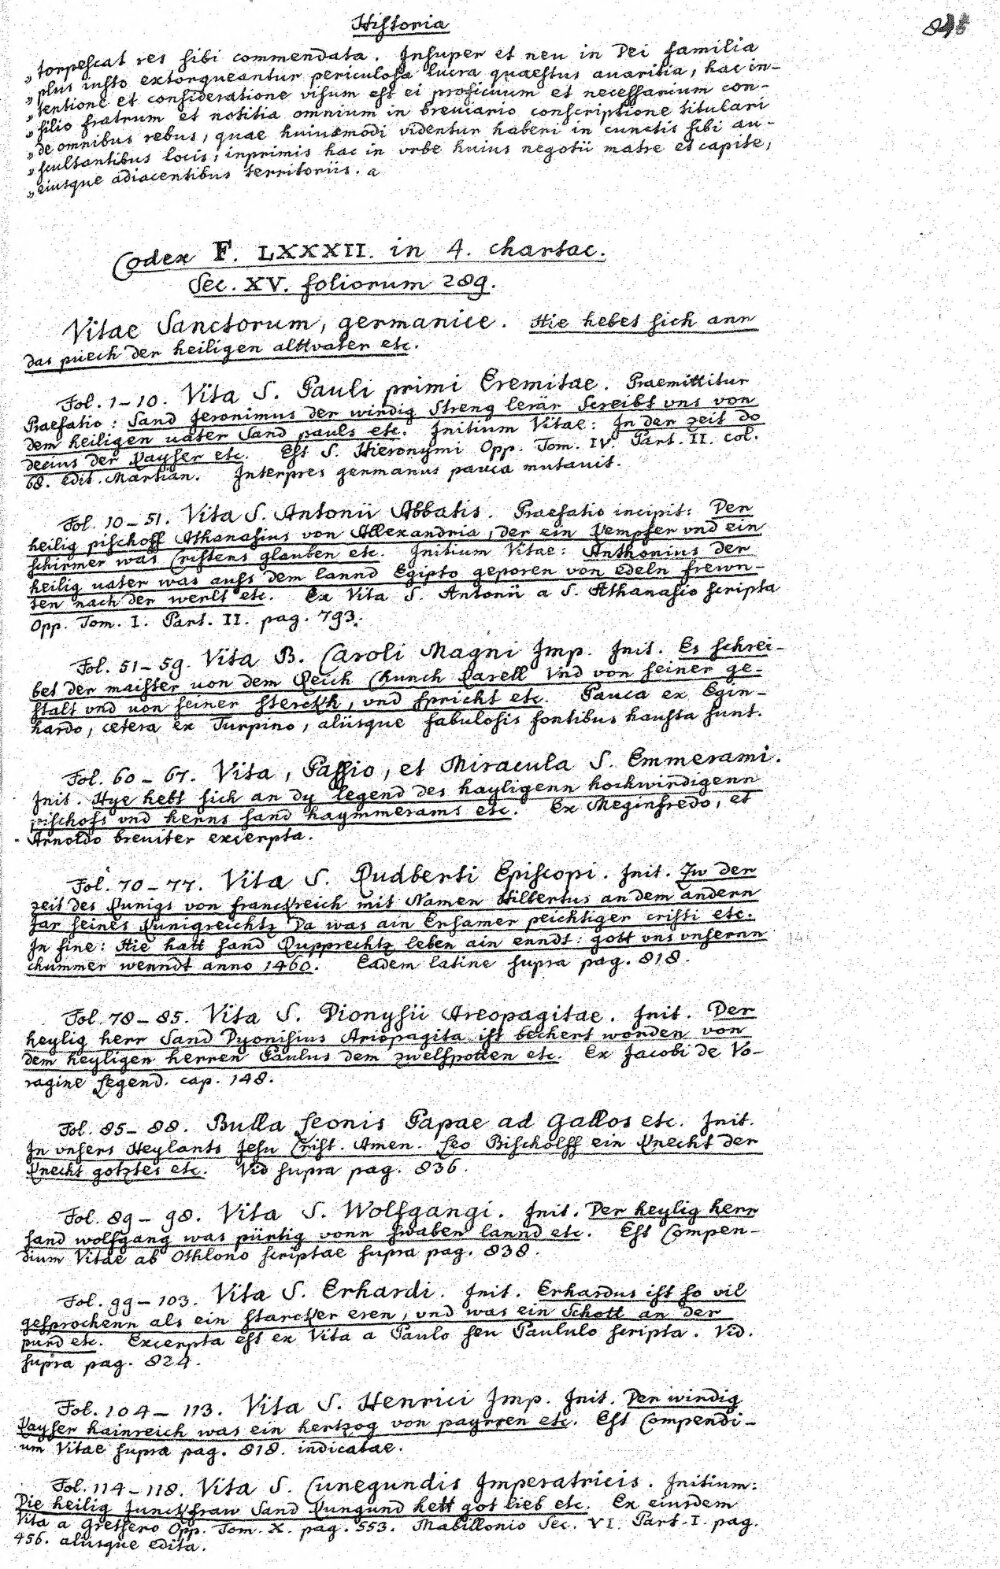 Historia
„ torpescat res sibi commendata. Insuper et neu in Dei familia
„ plus iusto extorqueantur periculosa lucra quaestus auaritia, hac in-
„ tentione et consideratione visum est ei proficuum et necessarium con-
„ silio fratrum et notitia omnium in breuiario conscriptione titulari
„ de omnibus rebus, quae huiusmodi videntur haberi in cunctis sibi au-
„ scultantibus locis; inprimis hac in vrbe huius negotii matre et capite,
„ eiusque adiacentibus territoriis. a
Codex F. LXXXII. in 4. chartac.
Sec. XV. foliorum 289.
Vitae Sanctorum, germanice. Hie hebet sich ann
das puech der heiligen alttvater etc.
Fol. 1-10. Vita S. Pauli primi Eremitae. Praemittitur
Praefatio: Sand Jeronimus der wirdig Streng lerär Screibt vns von
dem heiligen vater Sand pauls etc. Initium Vitae: In der zeit do
decius der Kayser etc. Est S. Hieronymi Opp. Tom. IV. Part. II. col.
68. edit. Martian. Interpres germanus pauca mutauit.
Fol. 10-51. Vita S. Antonii Abbatis. Praefatio incipit: Der
heilig pischoff Athanasius von Allexandria, der ein Kempfer vnd ein
schirmer was Cristens glauben etc. Initium Vitae: Anthonius der
heilig vater was aufs dem lannd Egipto geporen von edeln frewn-
ten nach der werlt etc. Ex Vita S. Antonii a S. Athanasio scripta
Opp. Tom. I. Part. II. pag. 793.
Fol. 51-59. Vita B. Caroli Magni Imp. Init. Es schrei-
bet der maister von dem Reich Chunch Karell Vnd von seiner ge-
stalt vnd von seiner sterckh, vnd spricht etc. Pauca ex Egin-
hardo, cetera ex Turpino, aliisque fabulosis fontibus hausta sunt.
Fol. 60-67. Vita, Passio, et Miracula S. Emmerami.
Init. Hye hebt sich an dy legend des hayligenn hochwirdigenn
pischofs vnd herns sand haymmerams etc. Ex Meginfredo, et
Arnoldo breuiter excerpta.
Fol. 70-77. Vita S. Rudberti Episcopi. Init. Zw der
zeit des Kunigs von franckreich mit Namen Hilbertus an dem andern
Jar seines Kunigreichtz Da was ain Ersamer peichtiger cristi etc.
In fine: Hie hatt sand Rupprechtz leben ain enndt: gott vns vnsernn
chummer wenndt anno 1460. Eadem latine supra pag. 818.
Fol. 78-85. Vita S. Dionysii Areopagitae. Init. Der
heylig herr Sand Dyonisius Ariopagita ist bechert worden von
dem heyligen herren Paulus dem zwelfpotten etc. Ex Jacobi de Vo-
ragine Legend. cap. 148.
Fol. 85-88. Bulla Leonis Papae ad Gallos etc. Init.
In vnsers Heylants Jesu Crist. Amen. Leo Bischolff ein Knecht der
Knecht gotztes etc. Vid supra pag. 836.
Fol. 89-98. Vita S. Wolfgangi. Init. Der heylig herr
sand wolfgang was pürtig vonn Swaben lannd etc. Est Compen-
dium Vitae ab Othlono scriptae supra pag. 838.
Fol. 99-103. Vita S. Erhardi. Init. Erhardus ist so vil
gesprochenn als ein starckher eren, vnd was ein Schott an der
purd etc. Excerpta est ex Vita a Paulo seu Paululo scripta. Vid.
supra pag. 824.
Fol. 104-113. Vita S. Henrici Imp. Init. Der wirdig
Kayser hainreich was ein hertzog von payrren etc. Est Compendi-
um Vitae supra pag. 818. indicatae.
Fol. 114-118. Vita S. Cunegundis Imperatricis. Initium:
Die heilig Junckfraw Sand Kungund hett got lieb etc. Ex eiusdem
Vita a Gretsero Opp. Tom. X. pag. 553. Mabillonio Sec. VI. Part. I. pag.
456. aliisque edita.